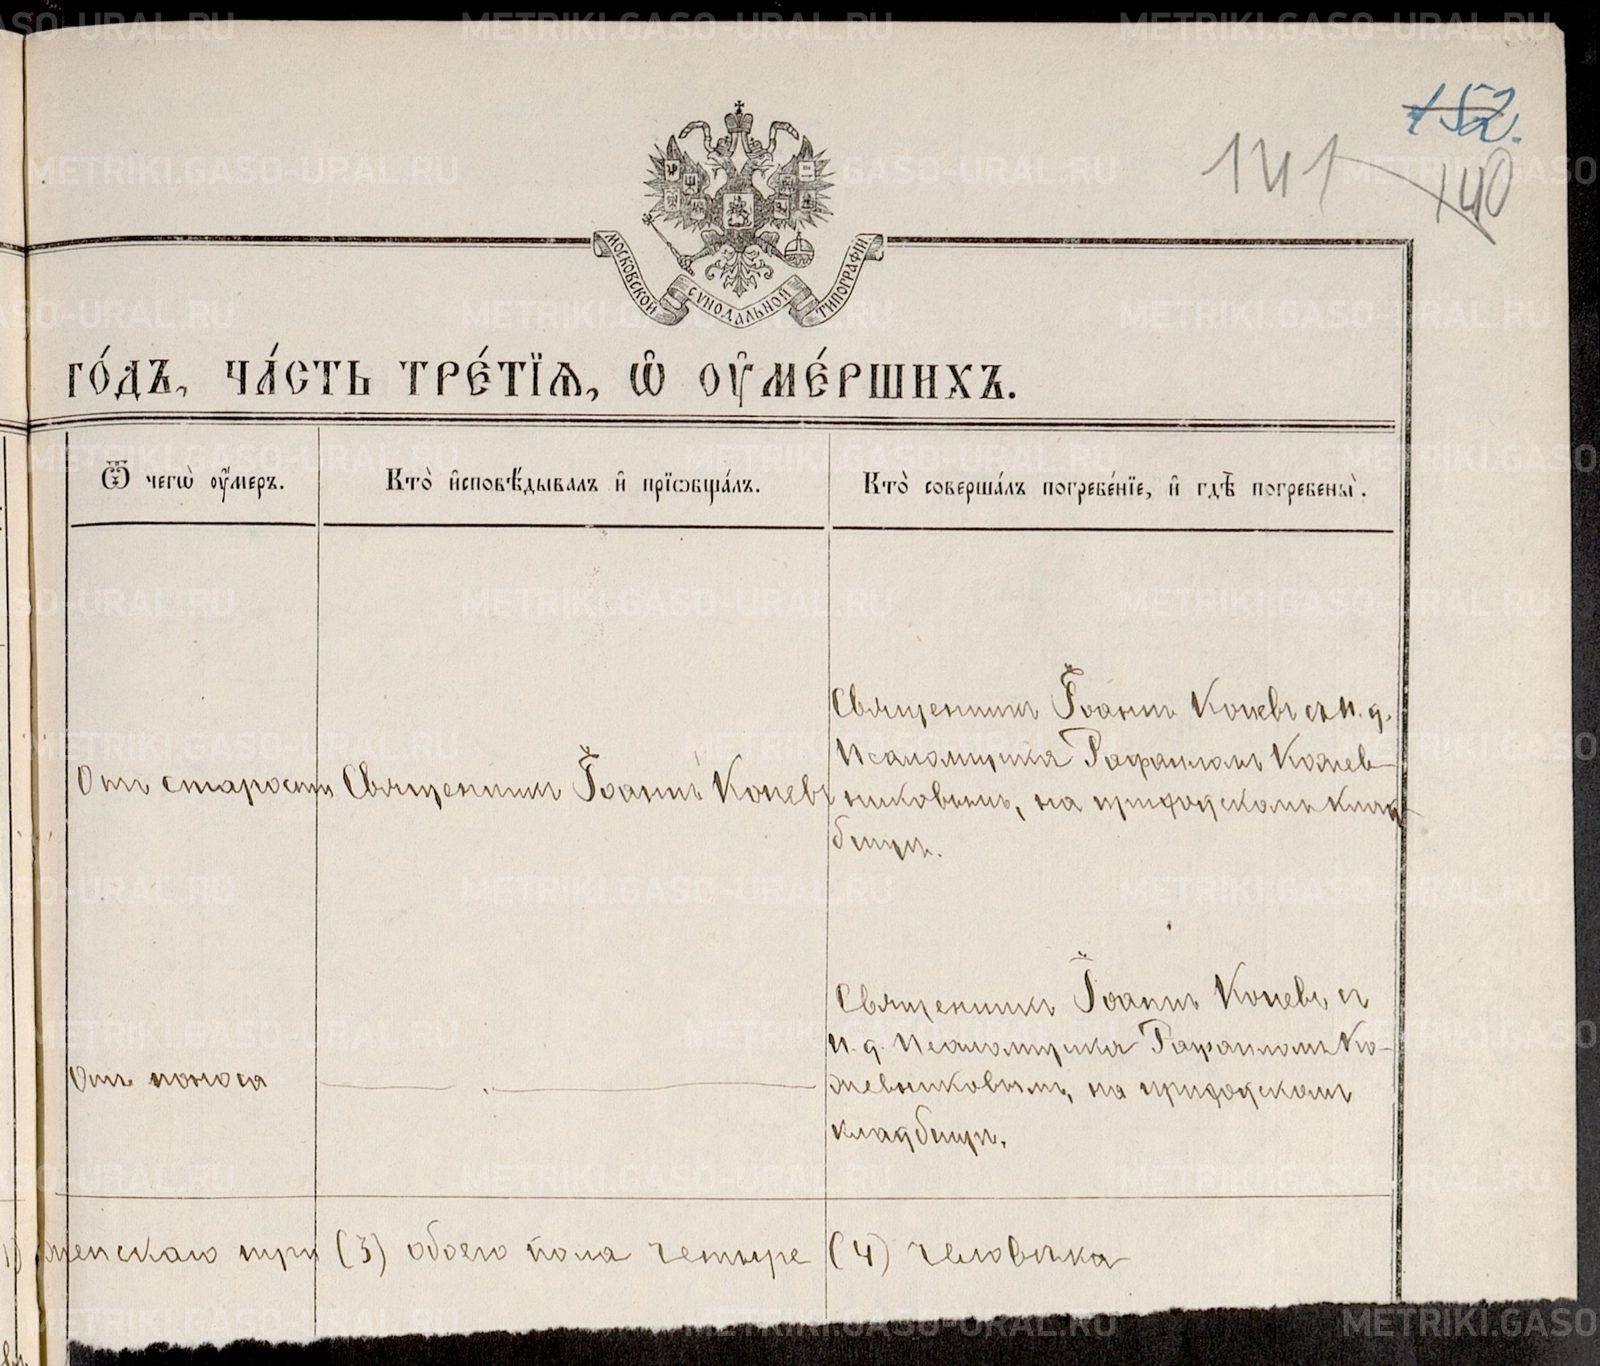 152.
141 140
МОСКОВСКОЙ СѴНОДАЛЬНОЙ ТИПОГРАФІИ
го́дъ, ча́сть тре́тїѧ, ѡ҆ оу҆ме́ршихъ.
Ѿ чегѡ̀ оу҆́меръ.
Кто̀ и҆сповѣ́дывалъ и҆ прїѡбща́лъ.
Кто̀ соверша́лъ погребе́нїе, и҆ гдѣ̀ погребены̀.
Отъ старости
Священникъ Іоаннъ Коневъ
Священникъ Іоаннъ Коневъ съ и. д.
Псаломщика Рафаиломъ Кожев-
никовымъ, на приходскомъ клад-
бищѣ.
Отъ поноса
Священникъ Іоаннъ Коневъ съ
и. д. Псаломщика Рафаиломъ Ко-
жевниковымъ, на приходскомъ
кладбищѣ.
женскаго три (3) обоего пола четыре (4) человѣка
METRIKI.GASO-URAL.RU